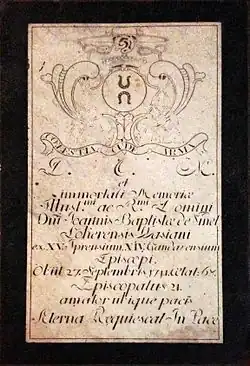 CŒLESTIA CUDE ARMA
et
immortali Memoriæ
Illust.mi ac R.mi Domini
Dni Joannis Baptistæ de Smet
Lokerensis Wasiani
ex XV Iprensium XIV Gandavensium
Episcopi.
Obiit 27. Septembris Ætat: 67.
Episcopatus 21.
amator ubique pacis
Æterna Requiescat In Pace